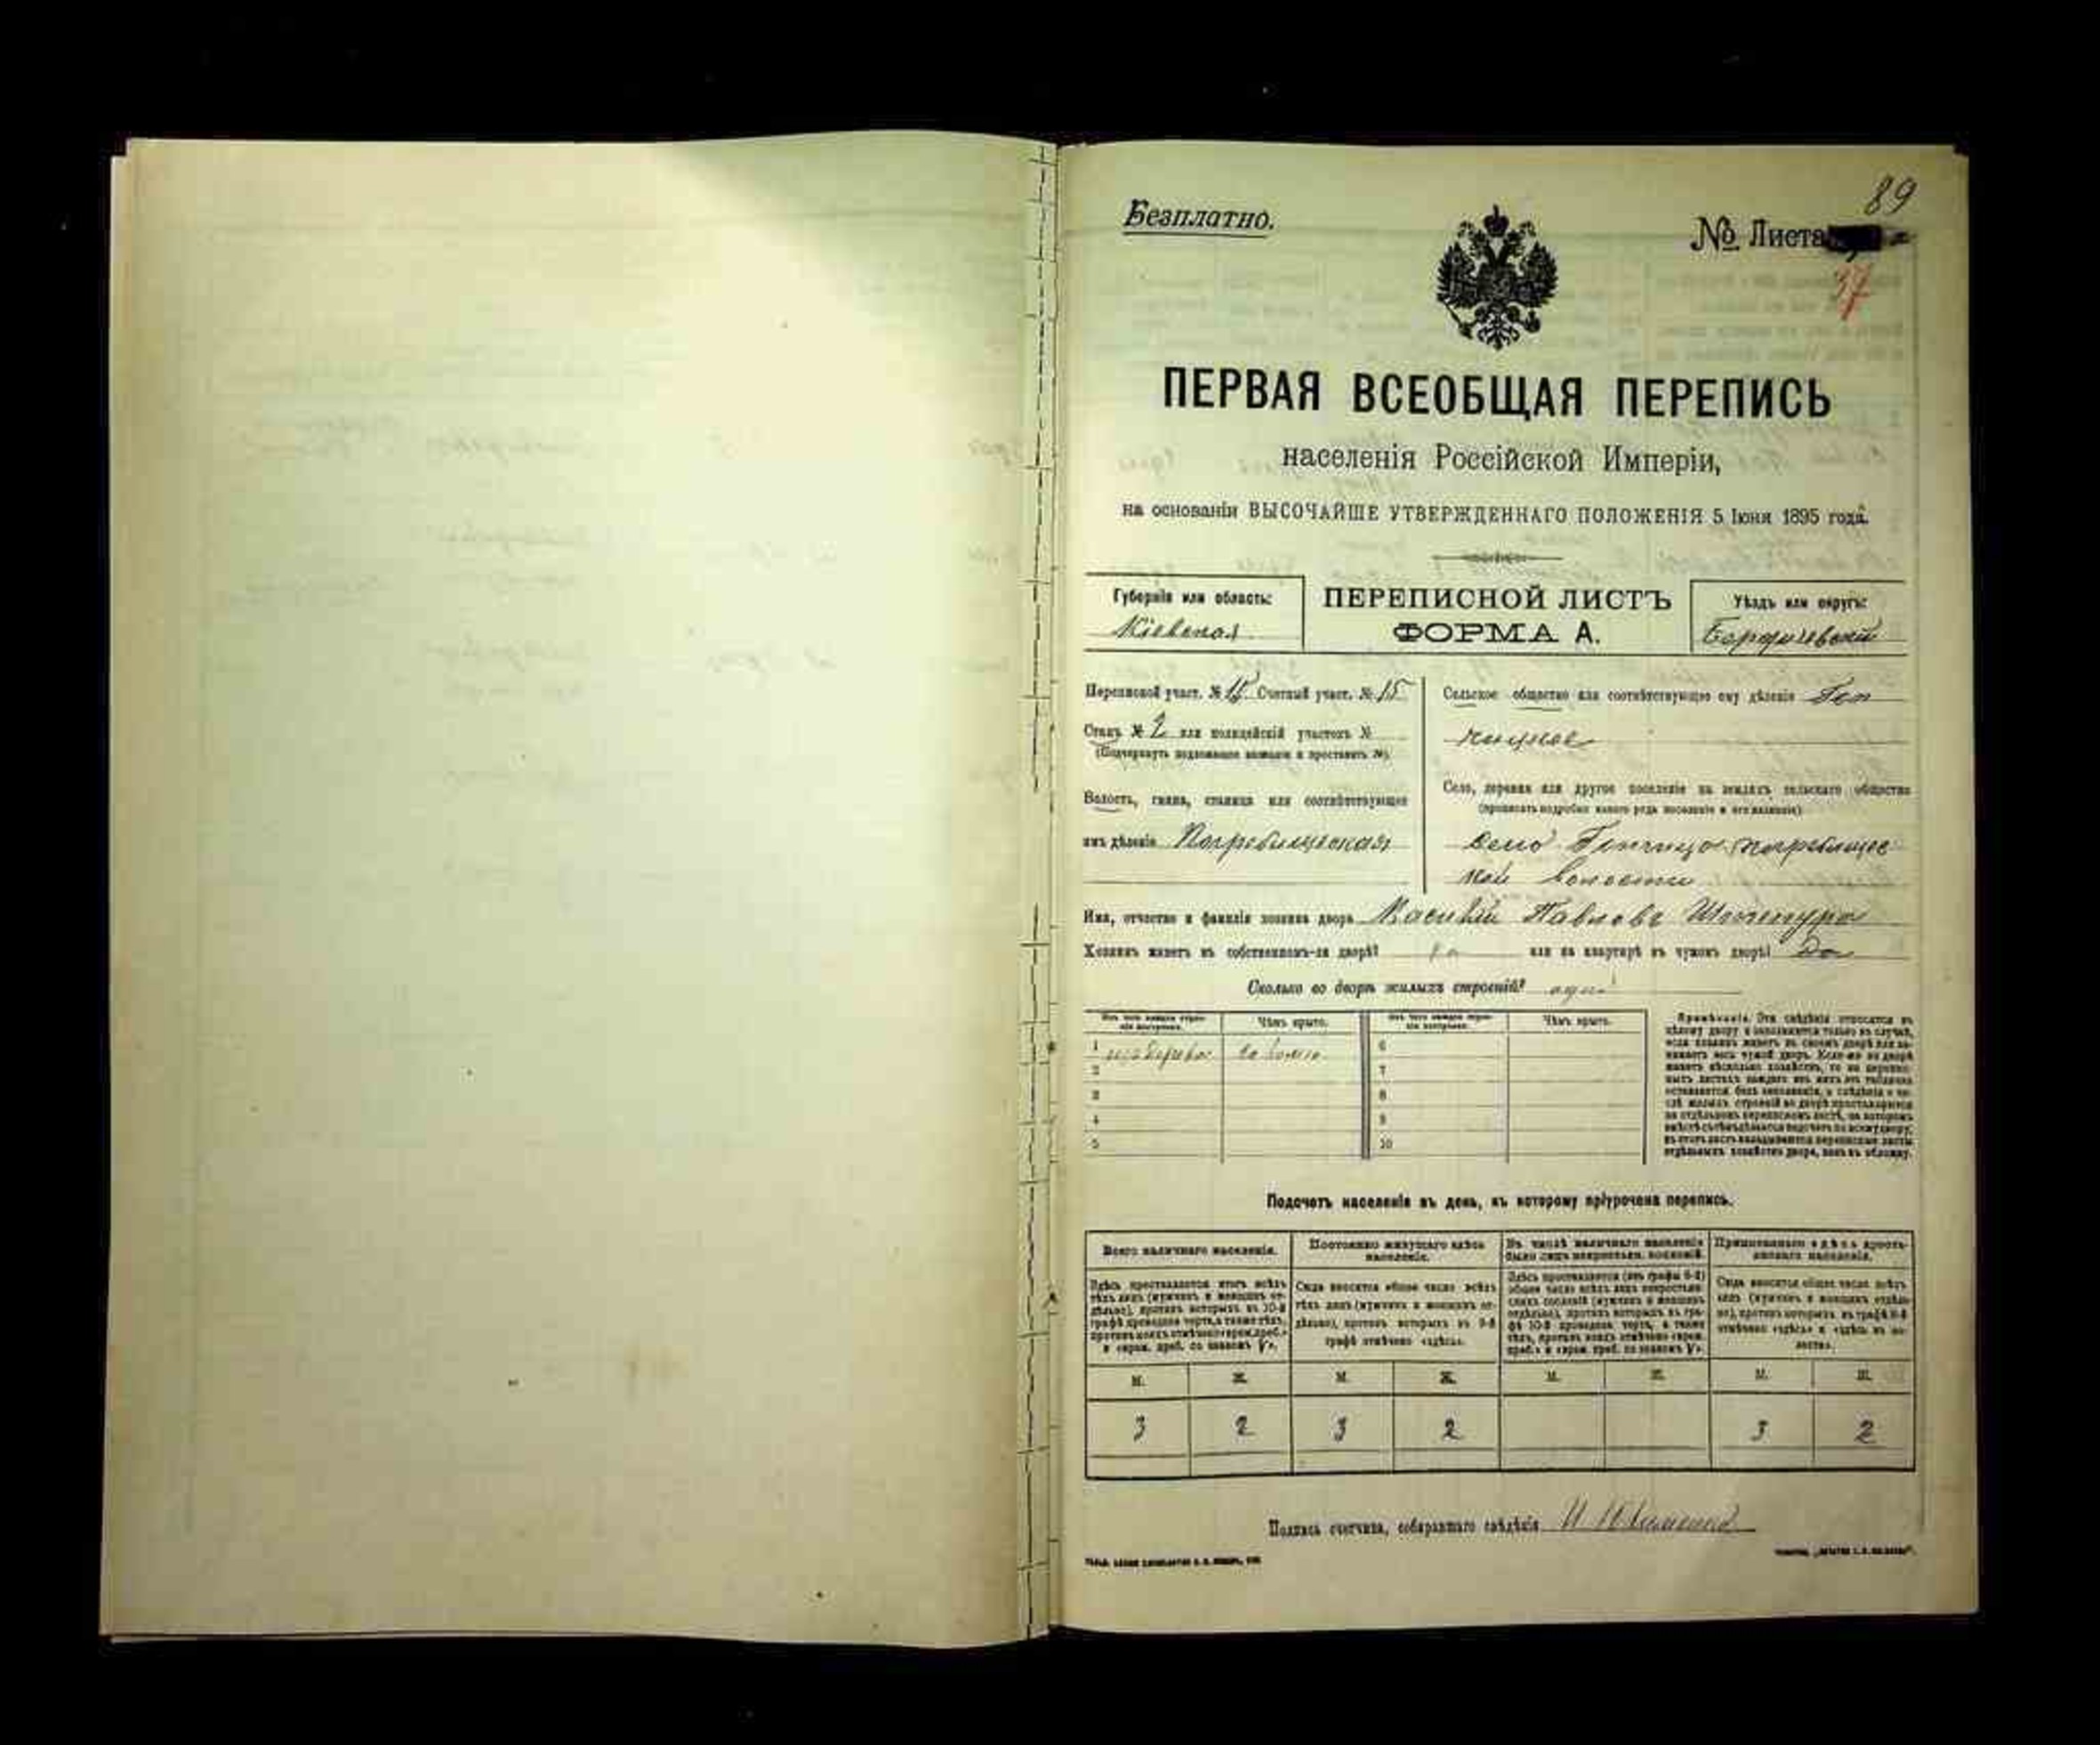 89
Безплатно.
№ Листа
37
ПЕРВАЯ ВСЕОБЩАЯ ПЕРЕПИСЬ
населенія Россійской Имперіи,
на основаніи ВЫСОЧАЙШЕ УТВЕРЖДЕННАГО ПОЛОЖЕНІЯ 5 Іюня 1895 года.
Губернія или область:
Кіевская
ПЕРЕПИСНОЙ ЛИСТЪ
ФОРМА А.
Уѣздъ или округъ:
Бердичевскій
Переписной участ. № 15 Счетный участ. № 15
Станъ № 2 или полицейскій участокъ №
(Подчеркнуть подлежащее названіе и проставить №)
Волость, гмина, станица или соотвѣтствующее
имъ дѣленіе Погребищенская
Сельское общество или соотвѣтствующее ему дѣленіе
Село, деревня или другое поселеніе на земляхъ сельскаго общества
(прописать подробно какого рода поселеніе и его названіе)
село Погребищес
кой волости
Имя, отчество и фамилія хозяина двора Василій Павловъ
Хозяинъ живетъ въ собственномъ-ли дворѣ? или на квартирѣ въ чужомъ дворѣ? Да
Сколько во дворѣ жилыхъ строеній? одно
Изъ чего каждое строеніе построено.
Чѣмъ крыто.
Изъ чего каждое строеніе построено.
Чѣмъ крыто.
1 изъ дерева соломою
2
3
4
5
6
7
8
9
10
Примѣчаніе. Эти свѣдѣнія относятся къ
цѣлому двору и заполняются только въ случаѣ,
если хозяинъ живетъ въ своемъ дворѣ или за-
нимаетъ весь чужой дворъ. Если-же во дворѣ
живетъ нѣсколько хозяйствъ, то на перепис-
ныхъ листахъ каждаго изъ нихъ эта табличка
оставляется безъ заполненія, а свѣдѣнія о чи-
слѣ жилыхъ строеній во дворѣ проставляются
на отдѣльномъ переписномъ листѣ, на которомъ
вмѣстѣ съ тѣмъ дѣлается подсчетъ по всему двору;
въ этотъ листъ вкладываются переписные листы
отдѣльныхъ хозяйствъ двора, какъ въ обложку.
Подсчетъ населенія въ день, къ которому пріурочена перепись.
Всего наличнаго населенія.
Постоянно живущаго здѣсь населенія.
Въ числѣ наличнаго населенія было лицъ некрестьян. сословій.
Приписаннаго здѣсь крестьянскаго населенія.
Здѣсь проставляется итогъ всѣхъ
тѣхъ лицъ (мужчинъ и женщинъ от-
дѣльно), противъ которыхъ въ 10-й
графѣ проведена черта, а также тѣхъ,
противъ коихъ отмѣчено «врем. преб.»
и «врем. преб. со знакомъ V».
Сюда вносится общее число всѣхъ
тѣхъ лицъ (мужчинъ и женщинъ от-
дѣльно), противъ которыхъ въ 9-й
графѣ отмѣчено «здѣсь».
Здѣсь проставляется (изъ графы 6-й)
общее число всѣхъ лицъ некрестьян-
скихъ сословій (мужчинъ и женщинъ
отдѣльно), противъ которыхъ въ гра-
фѣ 10-й проведена черта, а также
тѣхъ, противъ коихъ отмѣчено «врем.
преб.» и «врем. преб. со знакомъ V».
Сюда вносится общее число всѣхъ
лицъ (мужчинъ и женщинъ отдѣль-
но), противъ которыхъ въ графѣ 8-й
отмѣчено «здѣсь» и «здѣсь въ во-
лости».
М. Ж. М. Ж. М. Ж. М. Ж.
3 2 3 2 3 2
Подпись счетчика, собиравшаго свѣдѣнія